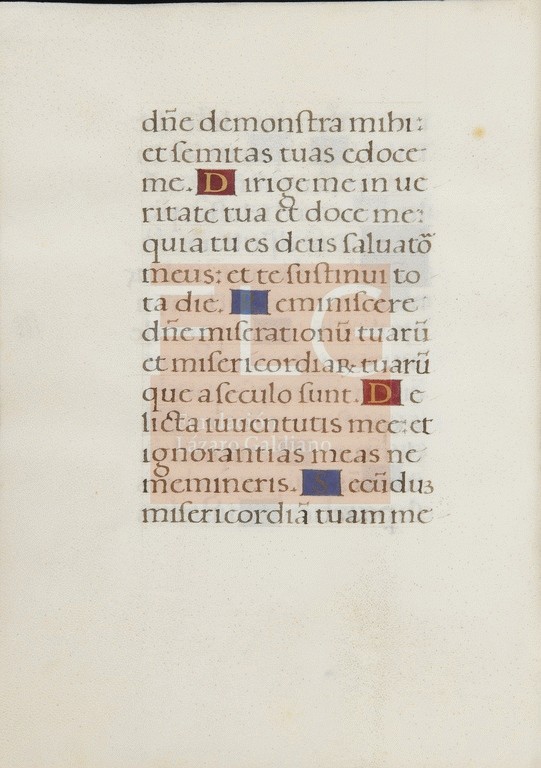 dn̄e demonſtra mihi:
et ſemitas tuas edoce
me. D irige me in ue
ritate tua et doce me:
quia tu es deus ſaluatō
meus: et te ſuſtinui to
ta die. R eminiſcere
dn̄e miſerationū tuarū
et miſericordiaꝝ tuarū
que a ſeculo ſunt. D e
licta iuuentutis mee: et
ignorantias meas ne
memineris. S ecūdu3
miſericordiā tuam me
FLG
Fundación
Lázaro Galdiano